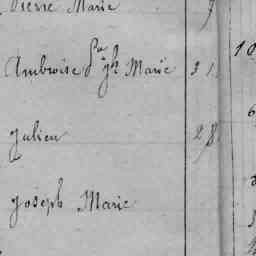 Pierre Marie
Ambroise Jh Marie 31
Julien 28
Joseph Marie
10